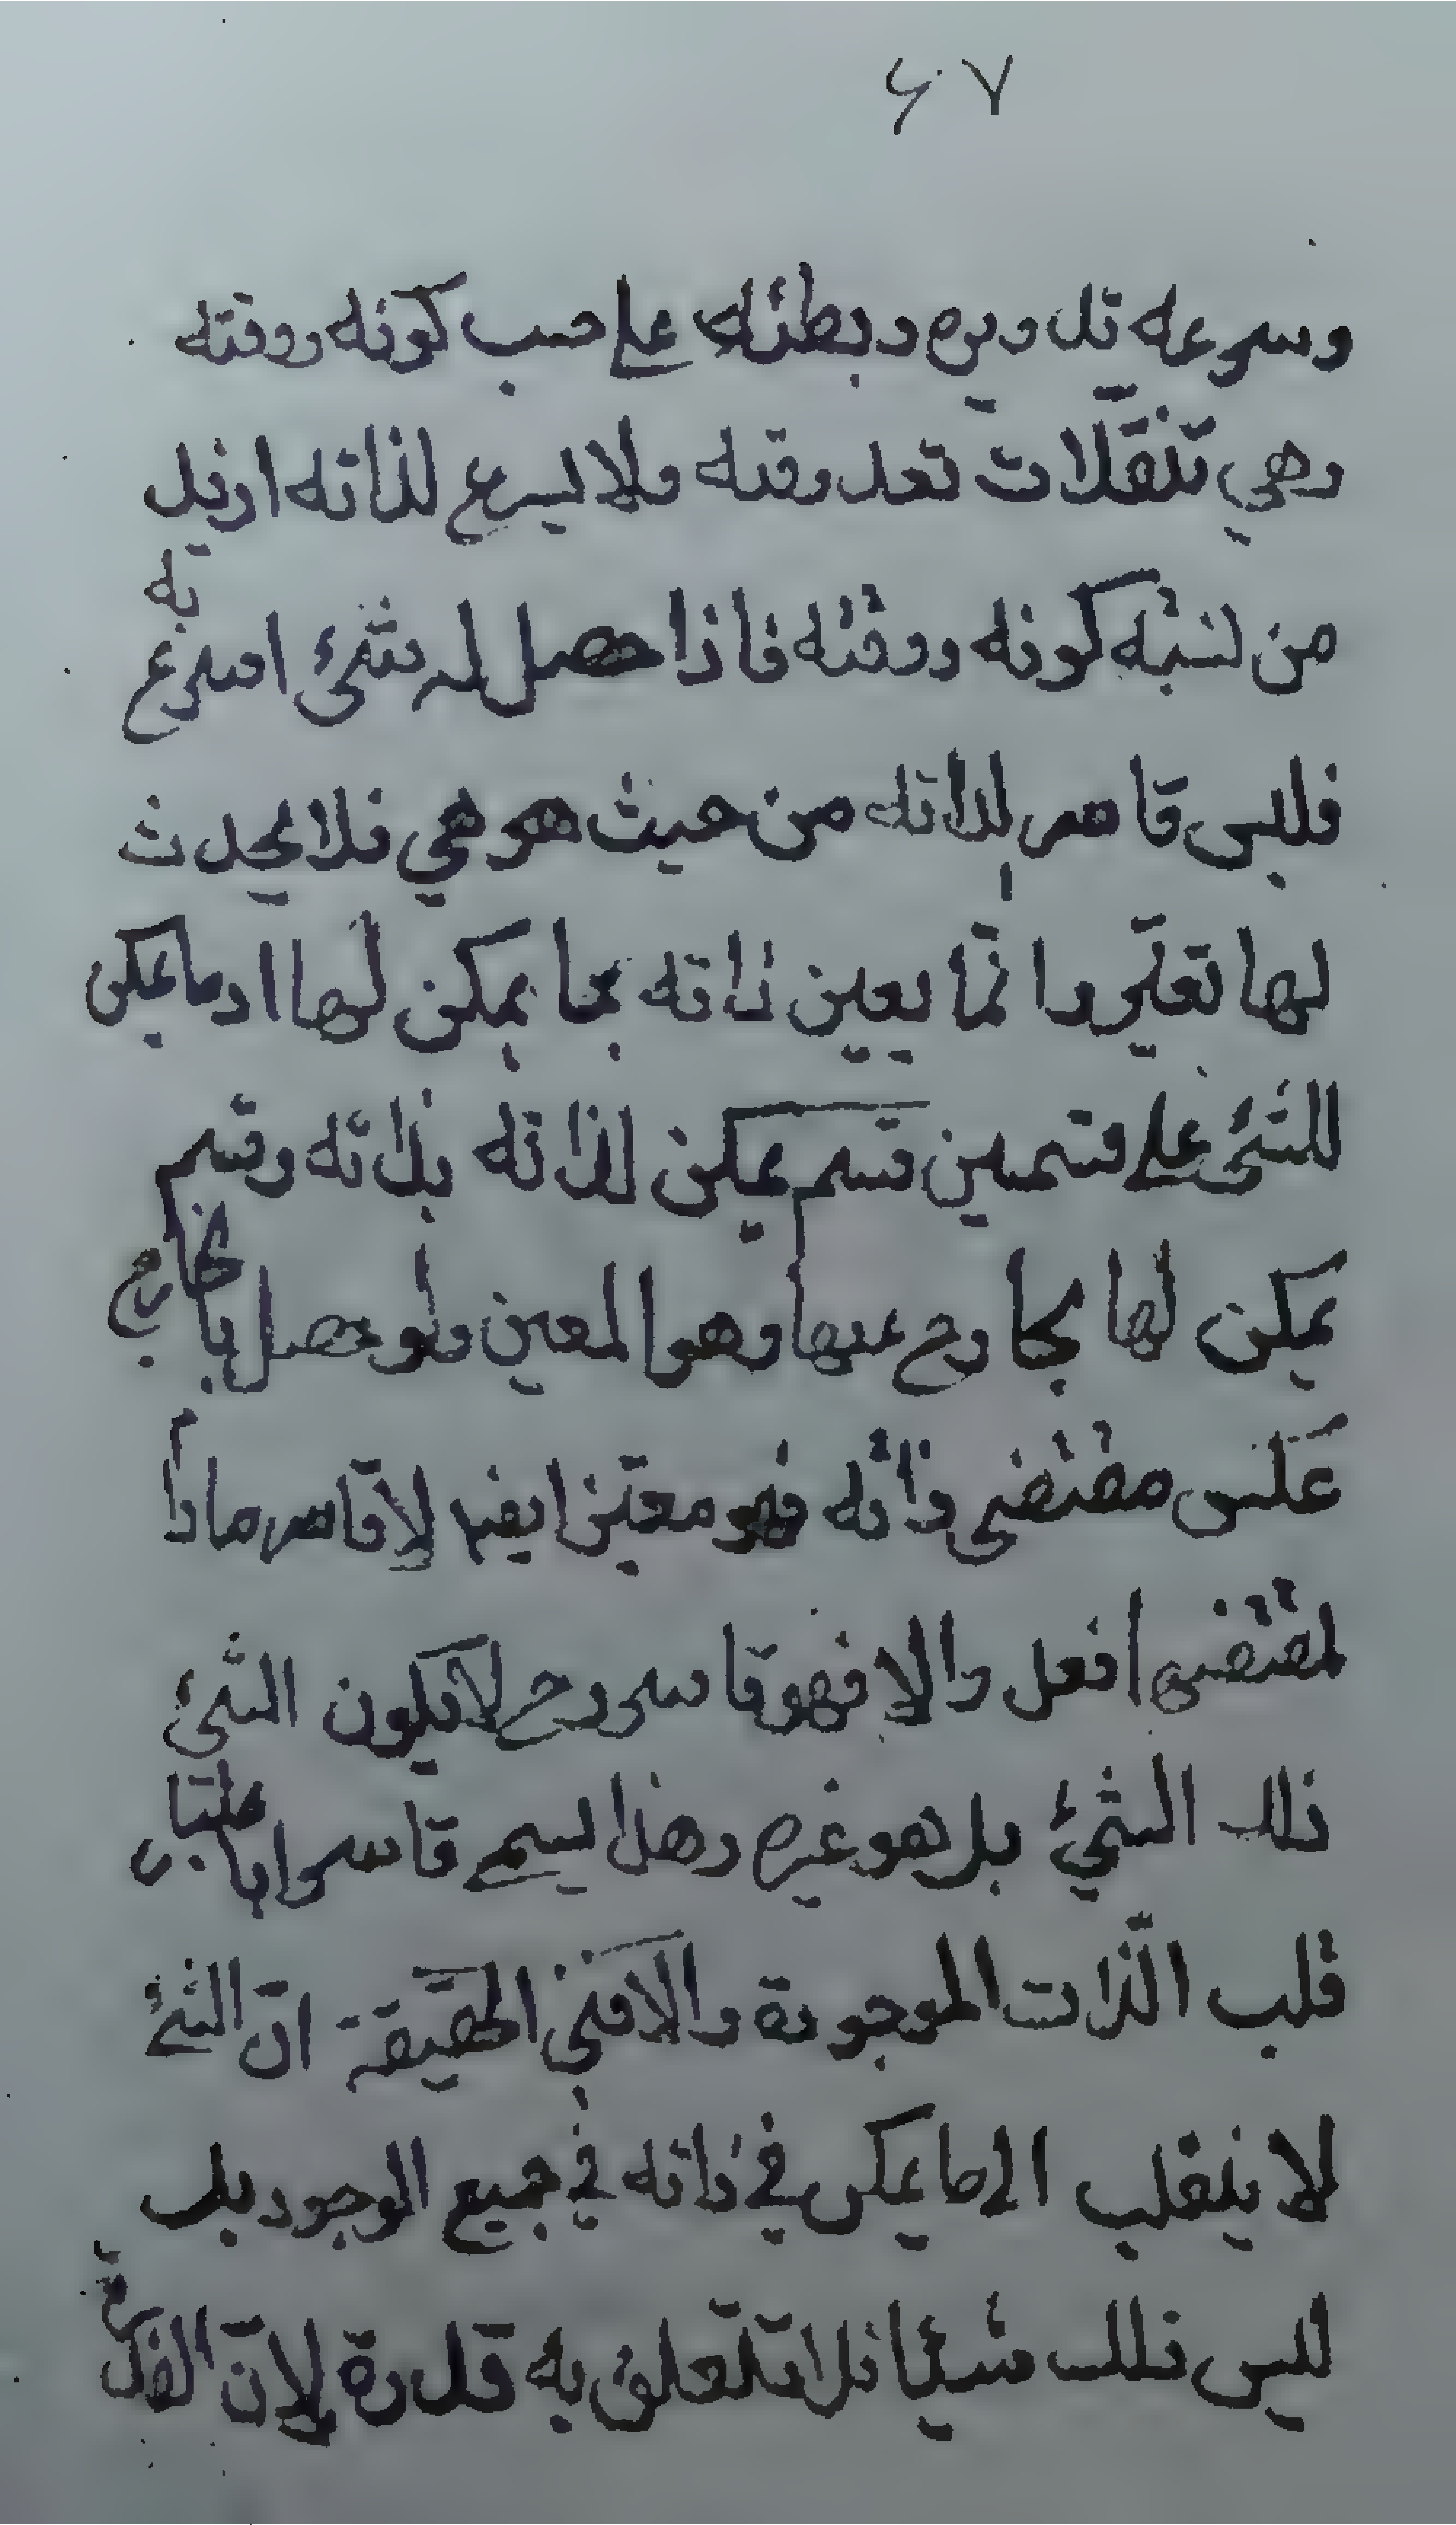 ٦٠٧
وسرعة تدويره وبطئه على حسب كونه ووقته
وهي تنقلات تعد وقته ولا يسرع لذاته ازيد
من نسبة كونه ووقته فاذا حصل له شئ اسرع به
فليس قاسر لذاته من حيث هو هي فلا يحدث
لها تغير وانما يعين ذاته بما يمكن لها اذ ما يمكن
للشئ على قسمين قسم يمكن لذاته بذاته وقسم
يمكن لها بخارج عنها وهو المعين ولو حصل بالخارج
عكس مقتضى ذاته فهو معين ايضا لا قاسر ما دام
لمقتضى افعل والا فهو قاسر وح لا يكون الشئ
ذلك الشئ بل هو غيره وهذا يسمى قاسرا باعتبار
قلب الذات الموجودة والا ففي الحقيقة ان الشئ
لا ينقلب الى ما يمكن في ذاته في جميع الوجود بل
ليس ذلك شيئا فلا تتعلق به قدرة لان القدرة